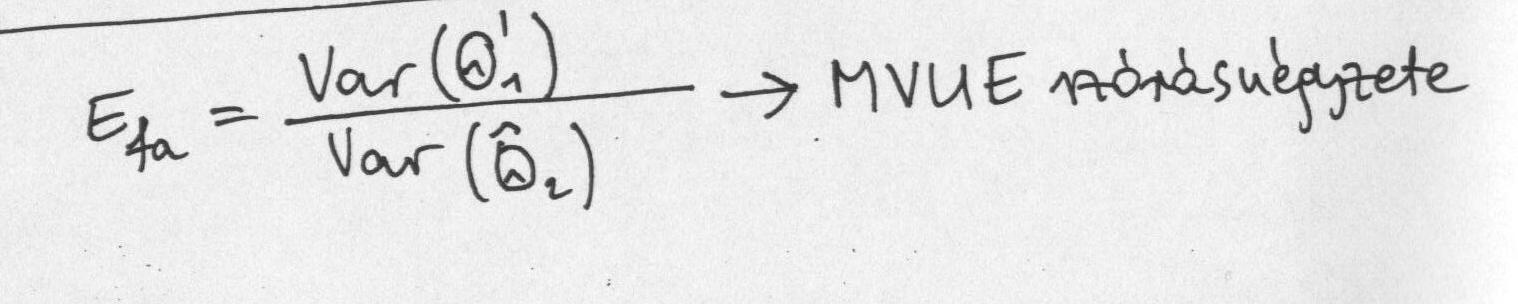 E_fa = Var(Θ̂'₁) / Var(Θ̂₂) → MVUE szórásnégyzete